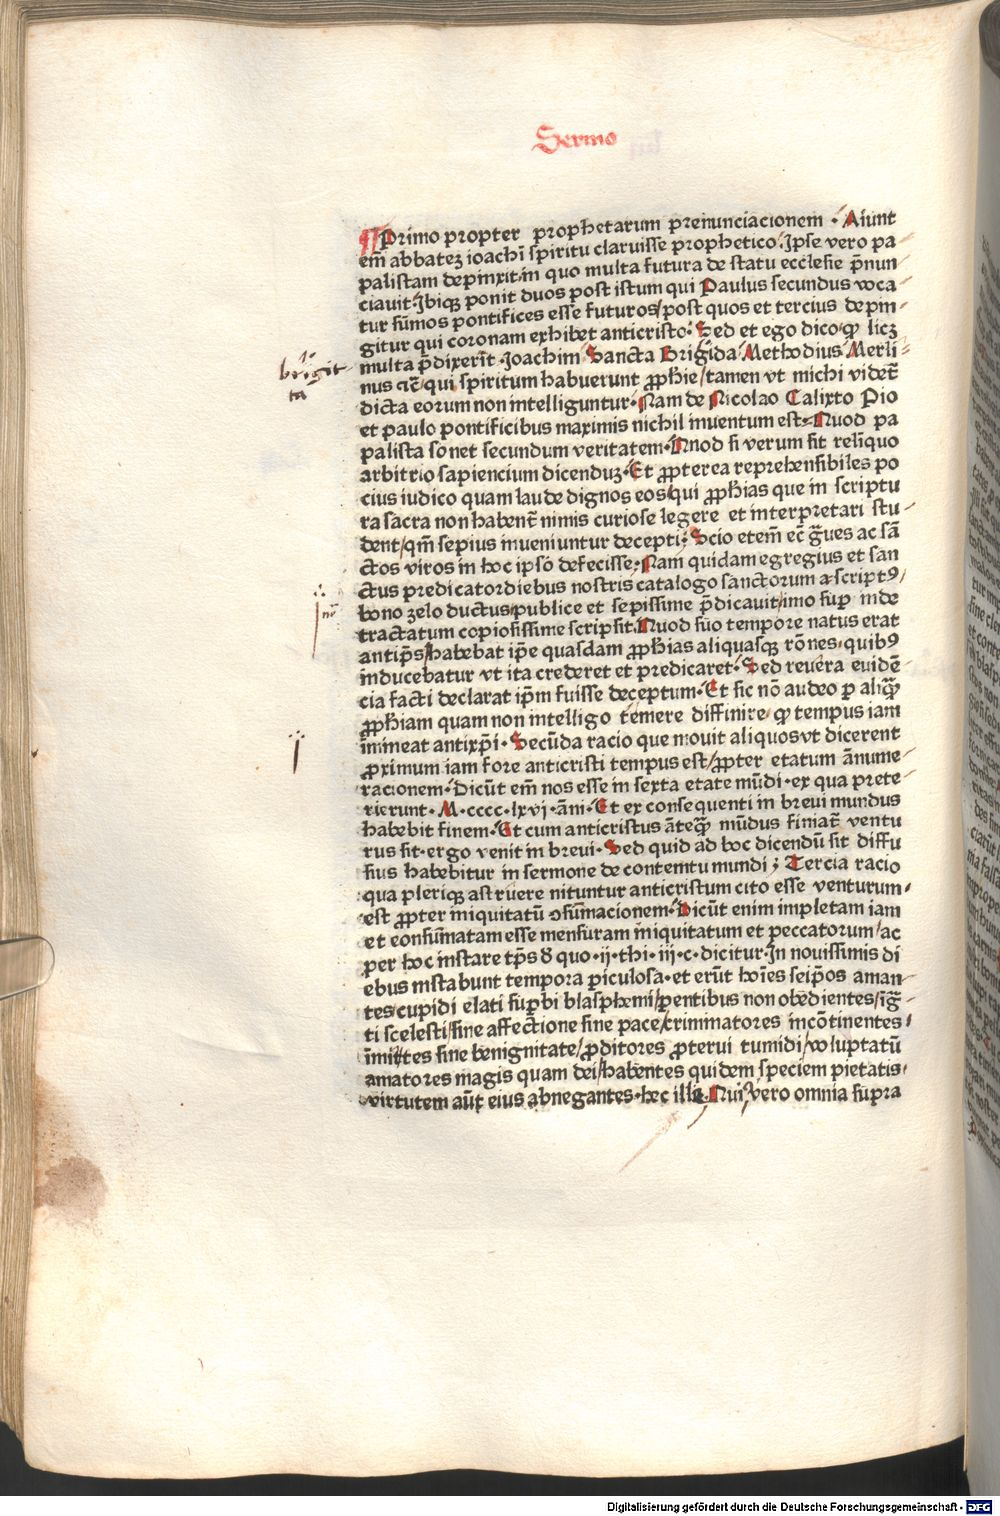 Sermo
¶ Primo propter prophetarum prenunciacionem · Aiunt
em̄ abbatez ioachī spiritu claruisse prophetico. Ipse vero pa⸗
palistam depinxit.in quo multa futura de statu ecclesie p̄nun⸗
ciauit.Ibiqꝫ ponit duos post istum qui Paulus secundus voca⸗
tur sūmos pontifices esse futuros/post quos et tercius depin⸗
gitur qui coronam exhibet anticristo. Sed et ego dico/ꝙ licz
multa p̄dixerīt · Ioachim/Sancta Brigida/Methodius/Merli⸗
nus etc̄/qui spiritum habuerunt ꝓphie/tamen vt michi videt̄
dicta eorum non intelliguntur. Nam de Nicolao Calixto Pio
et paulo pontificibus maximis nichil inuentum est⸗Quod pa
palista sonet secundum veritatem.Quod si verum sit reliquo
arbitrio sapiencium dicenduz.Et ꝓpterea reprehensibiles po
cius iudico quam laude dignos eos/qui ꝓphias que in scriptu
ra sacra non habent̄ nimis curiose legere et interpretari stu⸗
dent/qm̄ sepius inueniuntur decepti; Scio etem̄ ec̄ gᷓues ac sā
ctos viros in hoc ipso defecisse; Nam quidam egregius et san
ctus predicator diebus nostris catalogo sanctorum ascriptꝰ/
bono zelo ductus/publice et sepissime p̄dicauit/imo suꝑ inde
tractatum copiosissime scripsit.Quod suo tempore natus erat
antip̄s/habebat ip̄e quasdam ꝓphias aliquasqꝫ rōnes.quibꝰ
inducebatur vt ita crederet et predicaret. Sed reuera euidē⸗
cia facti declarat ip̄m fuisse deceptum. Et sic nō audeo ꝑ aliqᷓꝫ
ꝓphiam quam non intelligo temere diffinire/ ꝙ tempus iam
immineat antixp̄i. Secūda racio que mouit aliquos vt dicerent
ꝓximum iam fore anticristi tempus est/ꝓpter etatum ānume⸗
racionem.Dicūt em̄ nos esse in sexta etate mūdi · ex qua prete⸗
rierunt · M · cccc · lxvi · āni · Et ex consequenti in breui mundus
habebit finem.Et cum anticristus āteqᷓꝫ mūdus finiat̄ ventu
rus sit · ergo venit in breui · Sed quid ad hoc dicendū sit diffu
sius habebitur in sermone de contemtu mundi; Tercia racio
qua pleriqꝫ astruere nituntur anticristum cito esse venturum·
est ꝓpter iniquitatū ꝯsūmacionem.Dicūt enim impletam iam
et consūmatam esse mensuram iniquitatum et peccatorum/ac
per hoc instare tp̄s δ quo · ij · thi · iij · c · dicitur.In nouissimis di
ebus instabunt tempora ꝑiculosa · et erūt hoīes seip̄os aman⸗
tes/cupidi elati suꝑbi blasphemi/ꝑentibus non obedientes/īgᷓ⸗
ti scelesti/sine affectione sine pace/criminatores incōtinentes⸗
īmites sine benignitate/ꝓditores ꝓterui tumidi/voluptatū
amatores magis quam dei/habentes quidem speciem pietatis⸗
virtutem aūt eius abnegantes · hec ille. Qui vero omnia supra
brigit
ta
no
Digitalisierung gefördert durch die Deutsche Forschungsgemeinschaft - DFG